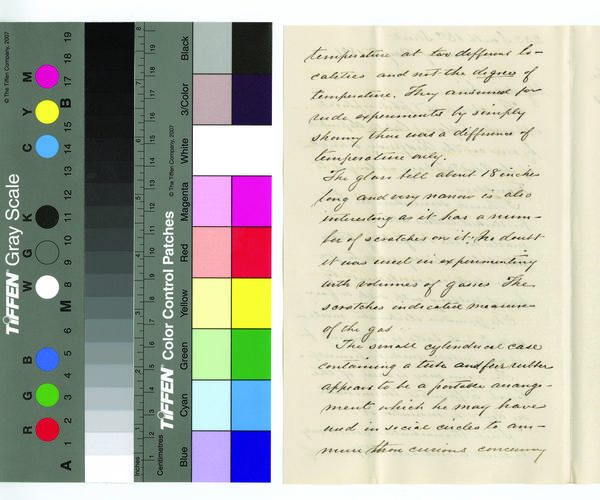 © The Tiffen Company, 2007
TIFFEN Gray Scale
R G B W G K C Y M
A 1 2 3 4 5 6 M 8 9 10 11 12 13 14 15 B 17 18 19
Inches
Centimetres
TIFFEN Color Control Patches
© The Tiffen Company, 2007
Blue Cyan Green Yellow Red Magenta White 3/Color Black
temperature at two different lo-
calities and not the degree of
temperature. They answered for
rude experiments by simply
showing there was a difference of
temperature only.
The glass bell about 18 inches
long and very narrow is also
interesting as it has a num-
ber of scratches on it. No doubt
it was used in experimenting
with volumes of gasses The
scratches indicative measures
of the gas
The small cylindrical case
containing a tube and fur rubber
appears to be a portable arrange-
ment which he may have
used in social circles to am-
those curious concerning